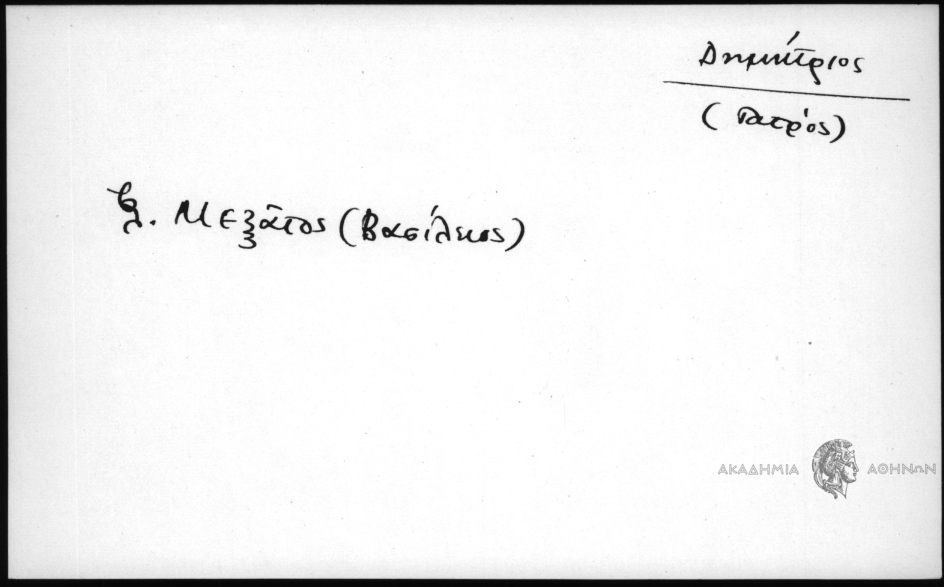 Δημήτριος
(ἰατρός)
βλ. Μεξᾶτος (Βασίλειος)
ΑΚΑΔΗΜΙΑ ΑΘΗΝΩΝ